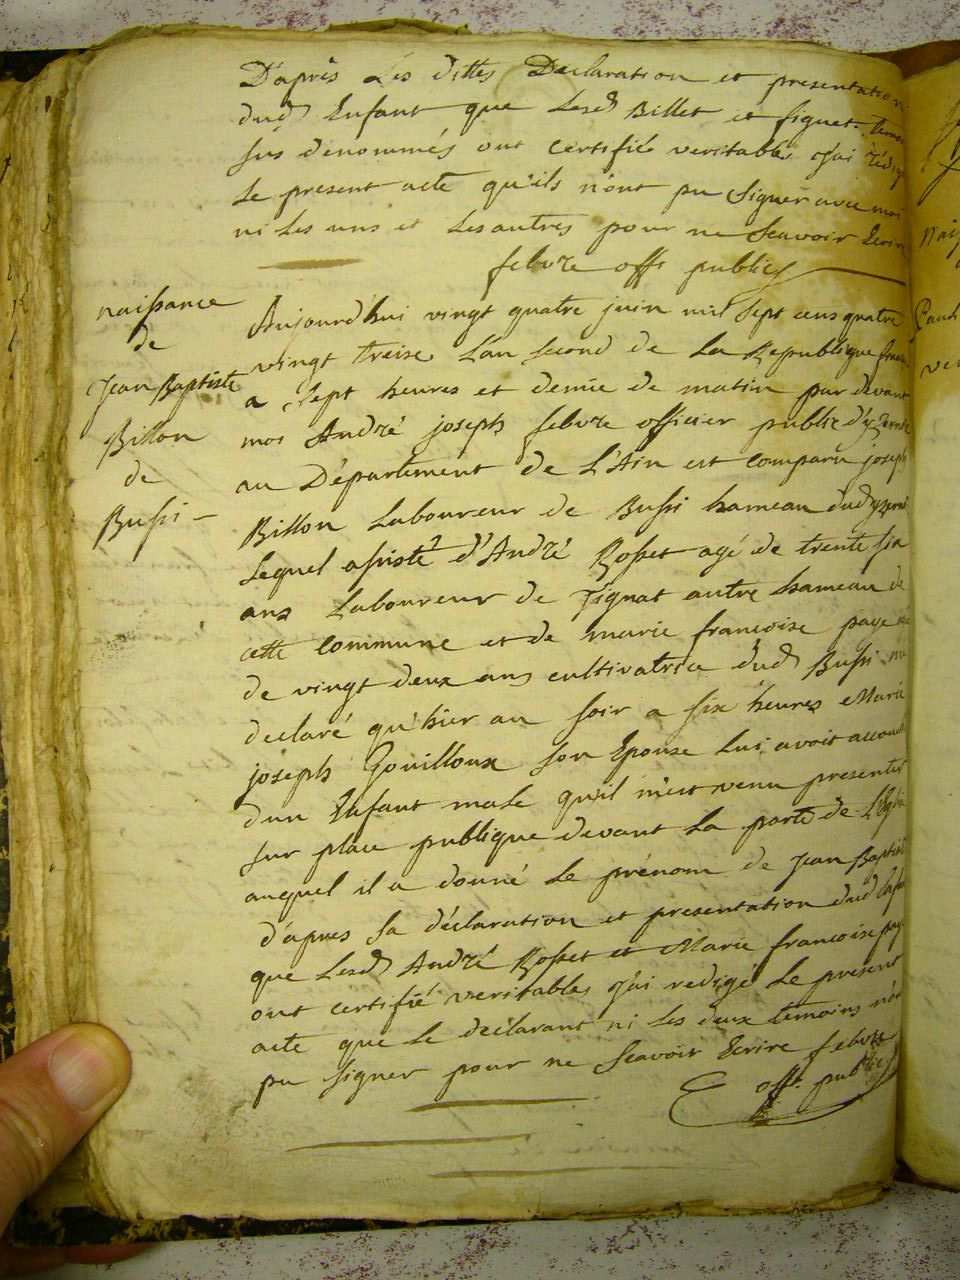 D'après Les dittes Declaration et presentation
dud Enfant que Lesd Billet et figuet temoins
sus denommés ont certifié veritables J'ai rédigé
Le present acte qu'ils n'ont pu signer avec moi
ni Les uns et Les autres pour ne scavoir Ecrire
febvre offr public
naissance
de
Jean Baptiste
Billon
de
Bussi
Aujourd'hui vingt quatre juin mil sept cens quatre
vingt treise L'an second de La Republique
a sept heures et demie de matin par devant
moi André joseph febvre officier public
au Département de L'Ain est comparu joseph
Billon Laboureur de Bussi hameau
Lequel assisté d'André Rosset agé de trente six
ans Laboureur de Tignat autre hameau de
cette commune et de marie francoise page
de vingt deux ans cultivatrice dud Bussi
declaré qu'hier au soir a six heures Marie
joseph Gouilloux son Epouse Lui avoit accouché
d'un Enfant male qu'il m'est venu presenter
sur place publique devant La porte de L'Eglise
auquel il a donné Le prénom de Jean Baptiste
d'apres sa déclaration et presentation dud Enfant
que Lesd André Rosset et Marie francoise page
ont certifié veritables J'ai redigé Le present
acte que Le declarant ni Les deux temoins n'ont
pu signer pour ne scavoir Ecrire febvre
offr public